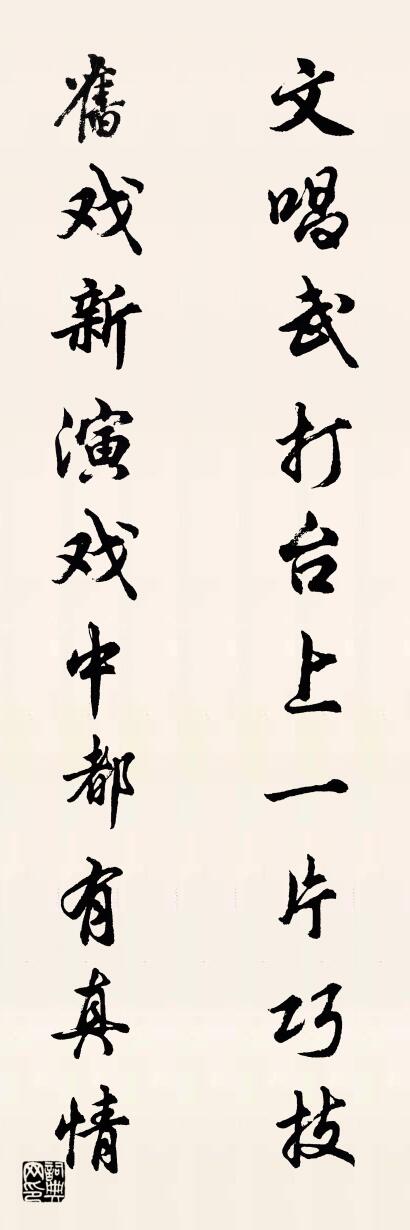 文唱武打台上一片巧技
舊戏新演戏中都有真情
詞典网印